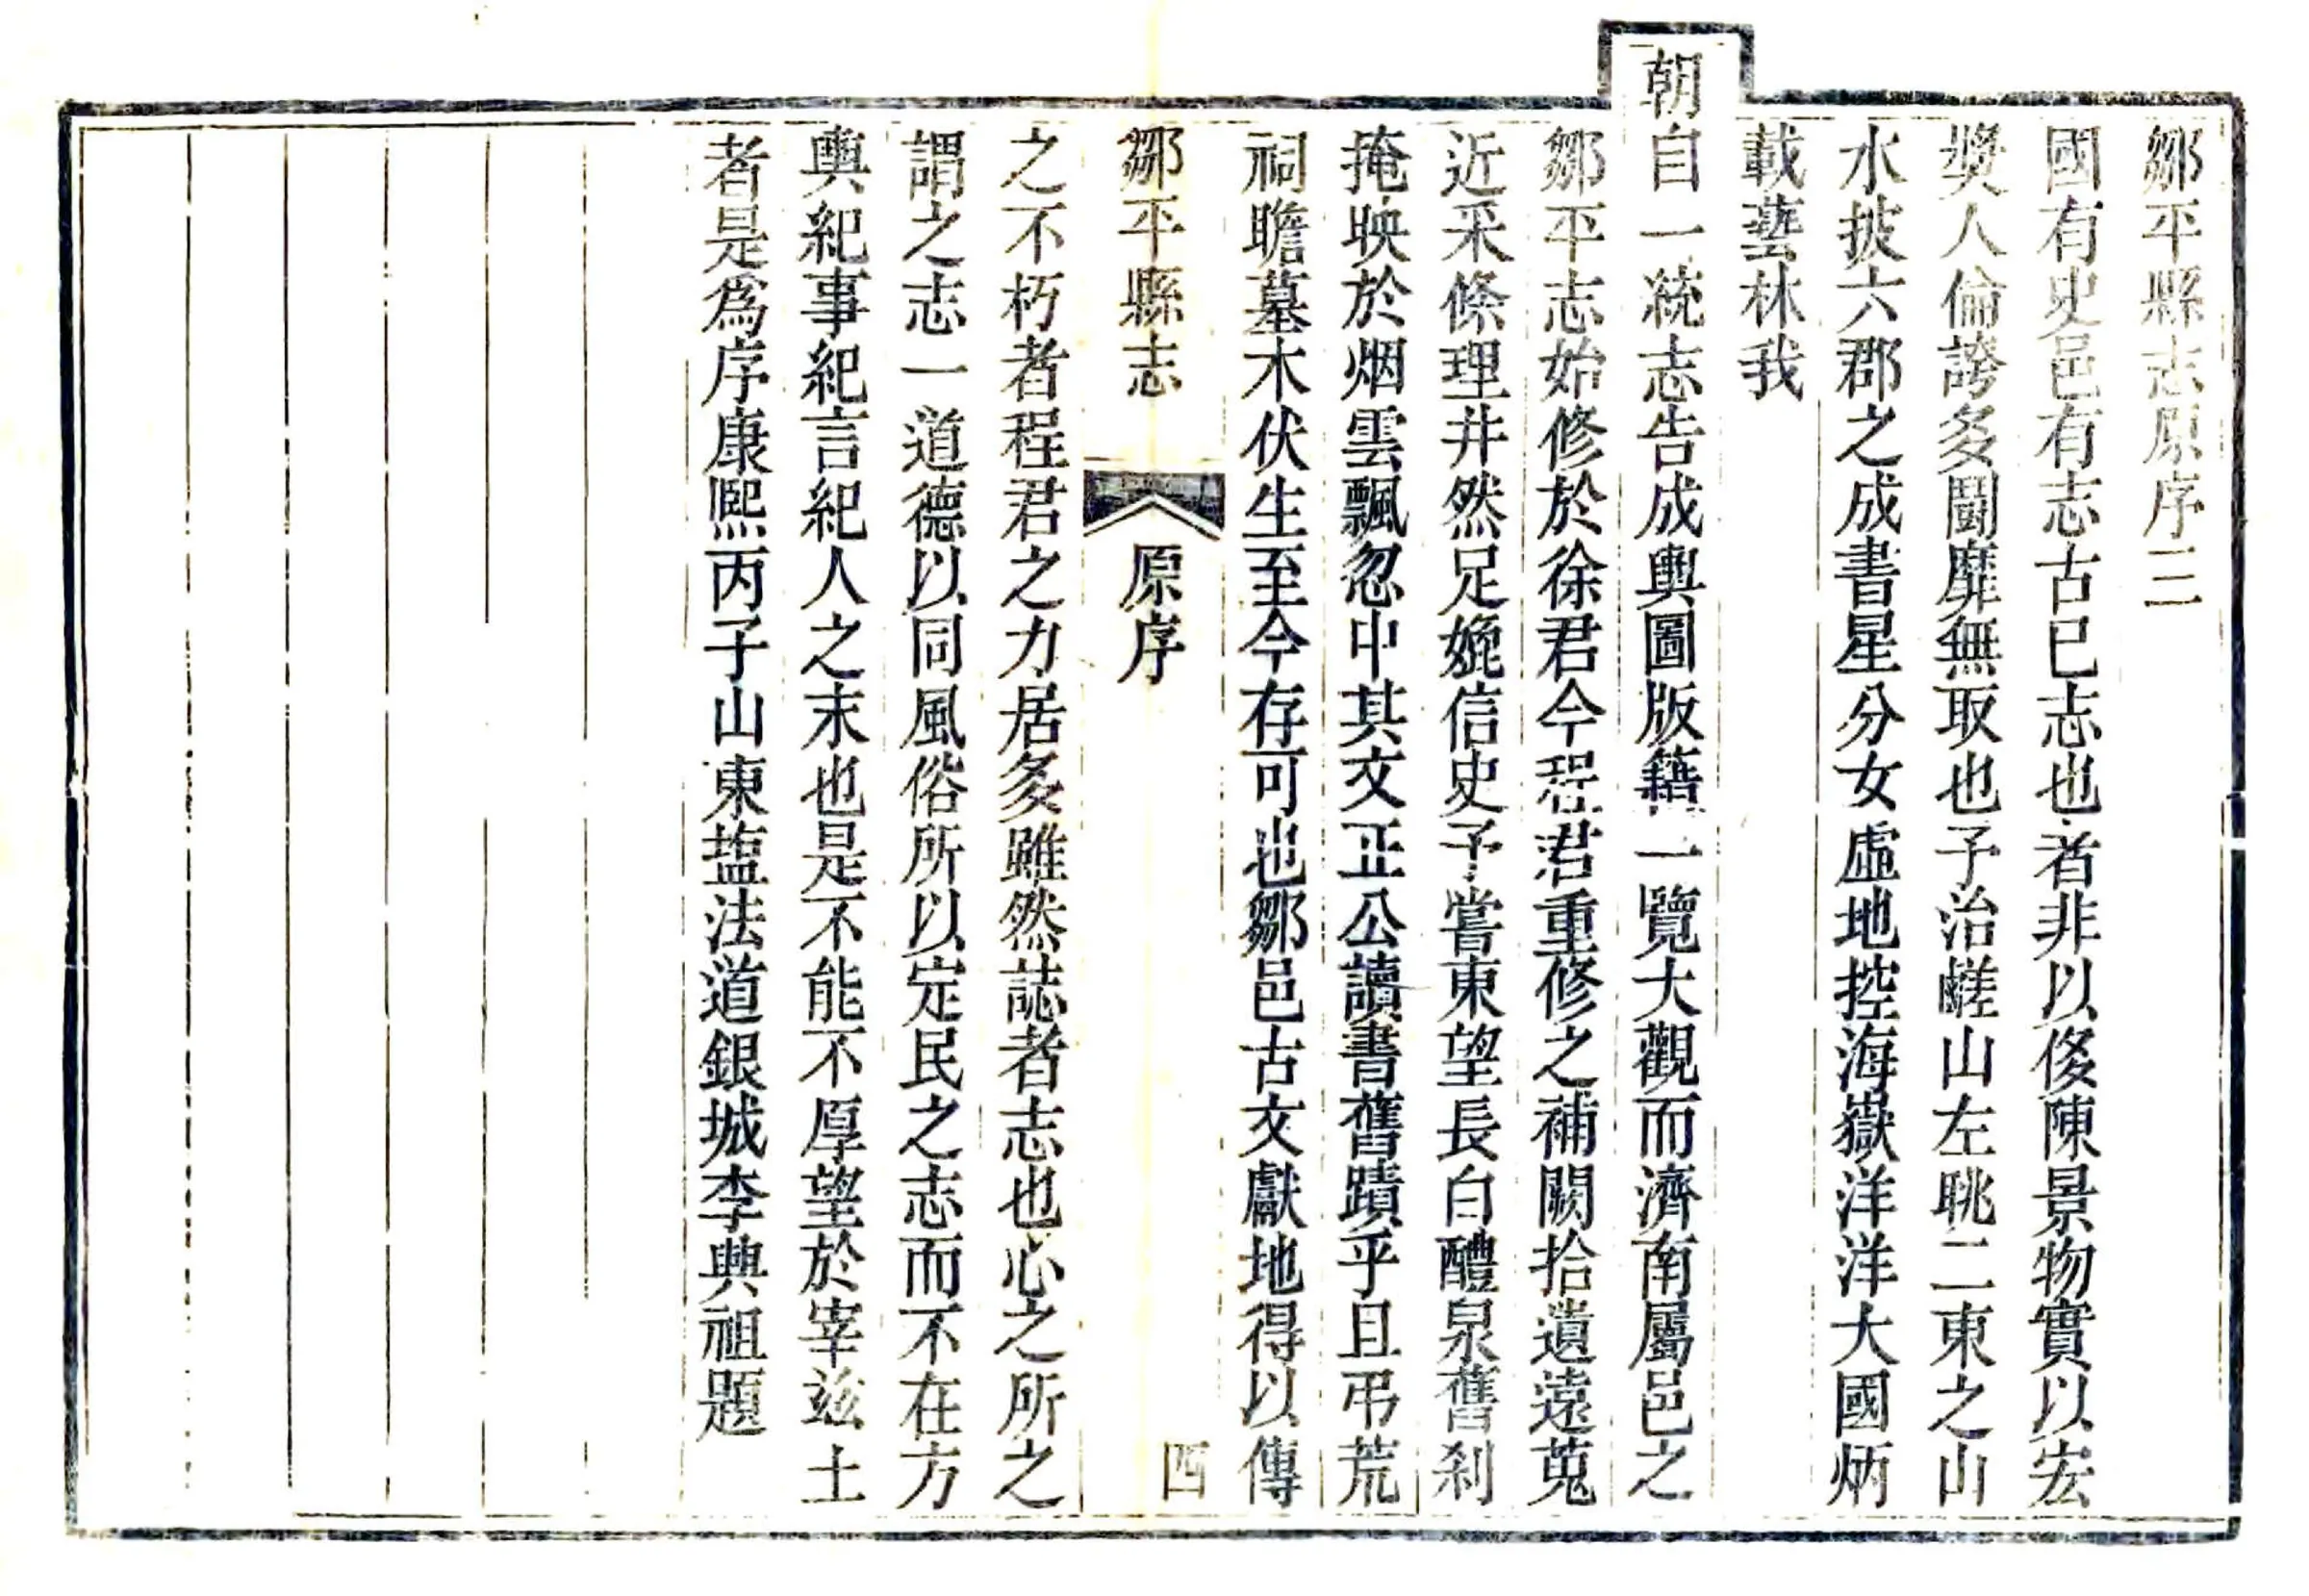 鄒平縣志原序三
國有史邑有志古已志也者非以侈陳景物實以宏
奬人倫誇多鬬靡無取也予治鹺山左眺二東之山
水披六郡之成書星分女虛地控海嶽洋洋大國炳
載藝林我
朝自一統志告成輿圖版籍一覽大觀而濟南屬邑之
鄒平志始修於徐君今程君重修之補闕拾遺遠蒐
近采條理井然足㛯信史予嘗東望長白醴泉舊刹
掩映於烟雲飄忽中其文正公讀書舊蹟乎且弔荒
祠瞻墓木伏生至今存可也鄒邑古文獻地得以傳
鄒平縣志 原序 四
之不朽者程君之力居多雖然誌者志也心之所之
謂之志一道德以同風俗所以定民之志而不在方
輿紀事紀言紀人之末也是不能不厚望於宰兹土
者是爲序康熙丙子山東塩法道銀城李興祖題